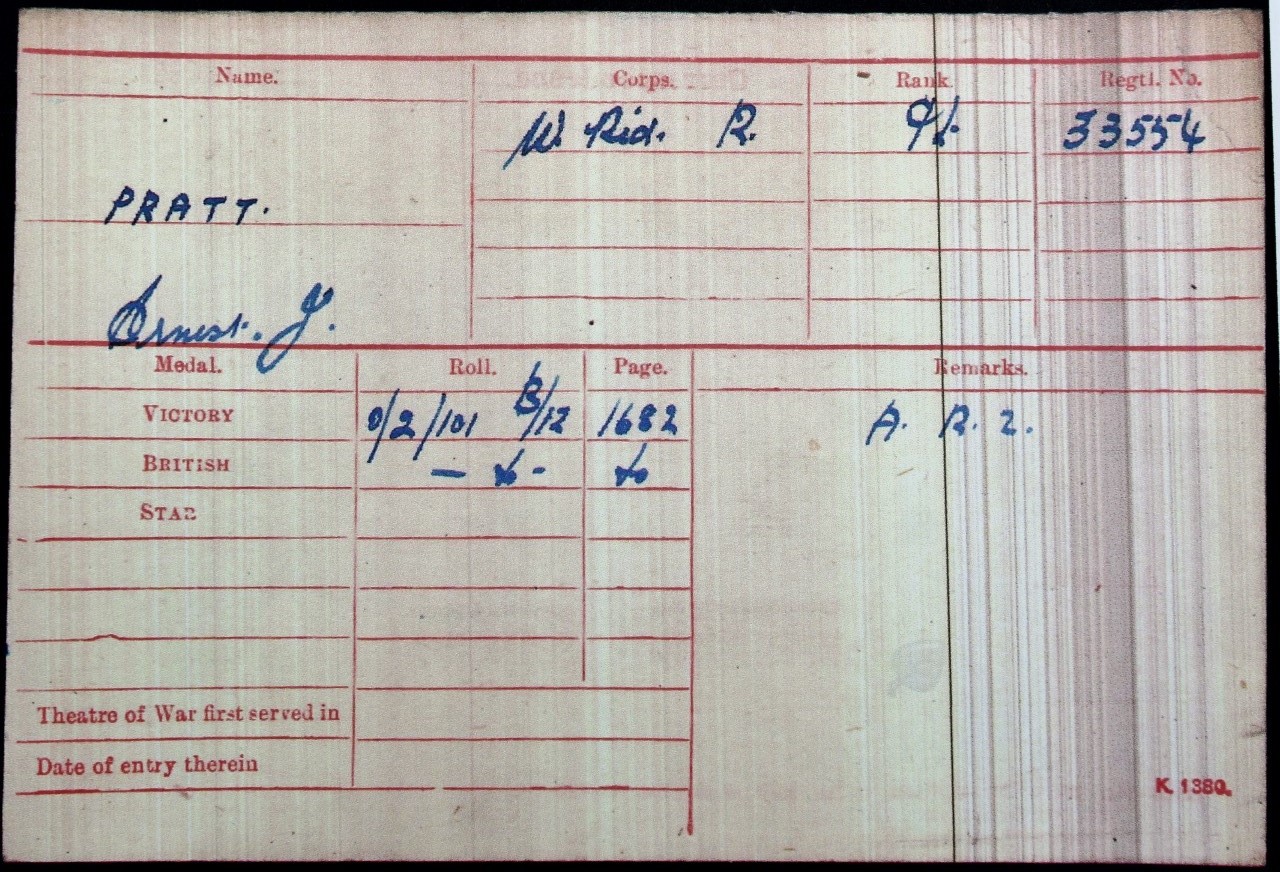 Name. Corps. Rank Regtl. No.
W. Rid. R. Pt. 33554
PRATT.
Ernest. J.
Medal. Roll. Page. Remarks.
VICTORY 0/2/101 B/12 1682 A. R. 2.
BRITISH — do - do
STAR
Theatre of War first served in
Date of entry therein
K. 1380.